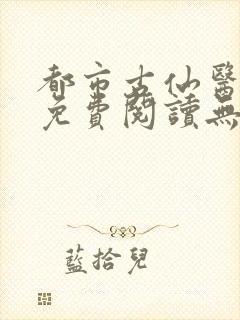 都市古仙醫
免費閱讀無
藍拾兒